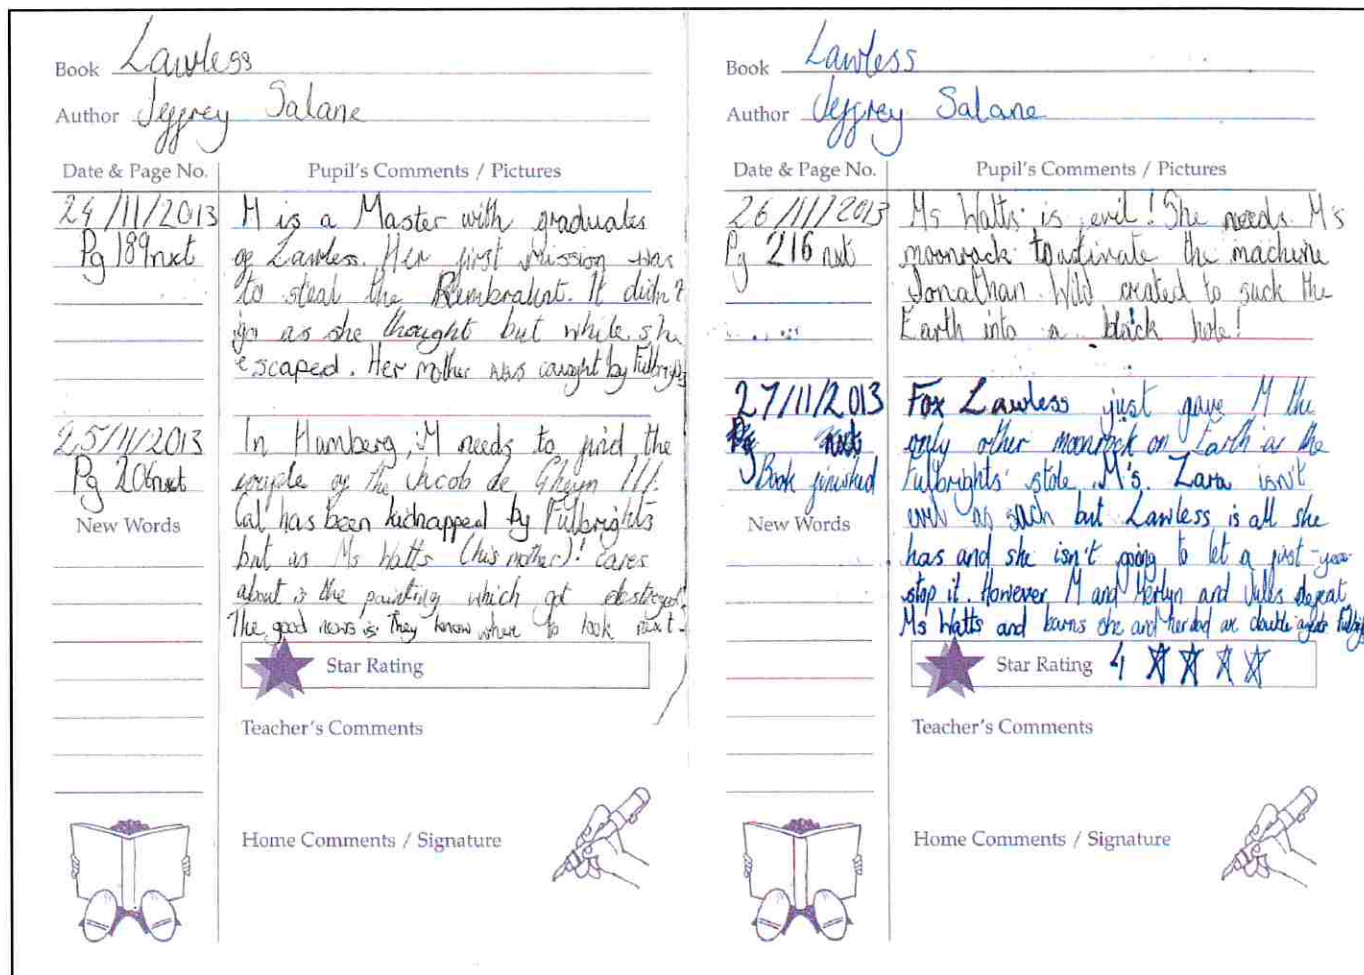 Book Lawless
Author Jeffrey Salane
Date & Page No.
Pupil's Comments / Pictures
24/11/2013
Pg 189 nxt
M is a Master with graduates
of Lawless. Her first mission was
to steal the Rembralint. It didn't
go as she thought but while she
escaped. Her mother was caught by Fulbrights
25/11/2013
Pg 206 nxt
In Humberg, M needs to find the
couple of the Jacob de Gheyn III.
Cal has been kidnapped by Fulbrights
but as Ms Watts (his mother)! cares
about is the painting which got destroyed.
The good news is they know where to look next.
New Words
Star Rating
Teacher's Comments
Home Comments / Signature
Book Lawless
Author Jeffrey Salane
Date & Page No.
Pupil's Comments / Pictures
26/11/2013
Pg 216 nxt
Ms Watts is evil! She needs M's
moonrock to activate the machine
Jonathan Wild created to suck the
Earth into a black hole!
27/11/2013
Book finished
Fox Lawless just gave M the
only other moonrock on Earth as the
Fulbrights' stole M's. Zara isn't
evil as such but Lawless is all she
has and she isn't going to let a first-year
stop it. However M and Merlyn and Jules defeat
Ms Watts and she and her dad are double agents
New Words
Star Rating 4 ☆ ☆ ☆ ☆
Teacher's Comments
Home Comments / Signature